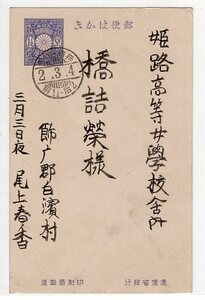 郵便はかき
姫路高等女學校舍内
橋詰榮樣
飾广郡白濱村
三月三日夜 尾上春香
2.3.4
印刷局製造
遞信省發行